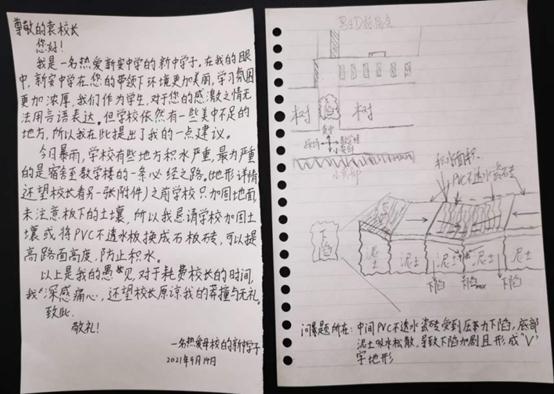 尊敬的袁校长
您好！
我是一名热爱新安中学的新中学子。在我的眼
中，新安中学在您的带领下环境更加美丽，学习氛围
更加浓厚。我们作为学生，对于您的感激之情无
法用言语表达。但学校依然有一些美中不足的
地方，所以我在此提出了我的一点建议。
今日暴雨，学校有些地方积水严重，最为严重
的是宿舍至教学楼的一条必经之路。(地形详情
还望校长看另一张附件)之前学校只加固地面，
未注意板下的土壤，所以我恳请学校加固土
壤或将PVC不透水板换成石板砖，可以提
高路面高度，防止积水。
以上是我的愚见，对于耗费校长的时间，
我深感痛心，还望校长原谅我的莽撞与无礼。
致此
敬礼！
一名热爱母校的新中学子
2021年9月19日
树
树
下陷
积水面积
PVC不透水瓷砖
下陷
泥土
泥土
泥土
泥土
泥土
下陷
下陷max
下陷
问题所在：中间PVC不透水瓷砖受到压力下陷，底部
泥土吸水松散，导致下陷加剧且形成"V"
字地形